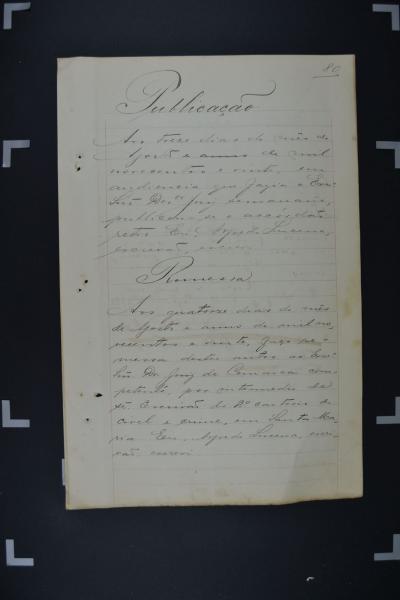 80
Publicação
Aos treze dias do mês de
Agosto e anno de mil
novecentos e vinte, em
audiencia que fazia o Exmº
Snr. Juiz semanario,
publicou-se o accórdão
retro. Eu, Lucena,
escrivão, escrevi.
Remessa
Aos quatorze dias do mês
de Agosto e anno de mil no-
vecentos e vinte, faço re-
messa destes autos ao Exmº
Snr. Dr. Juiz da Comarca com-
petente, por intermedio do
Escrivão do 2º cartorio do
civel e crime, em Santa Ma-
ria. Eu, Lucena, escri-
vão, escrevi.